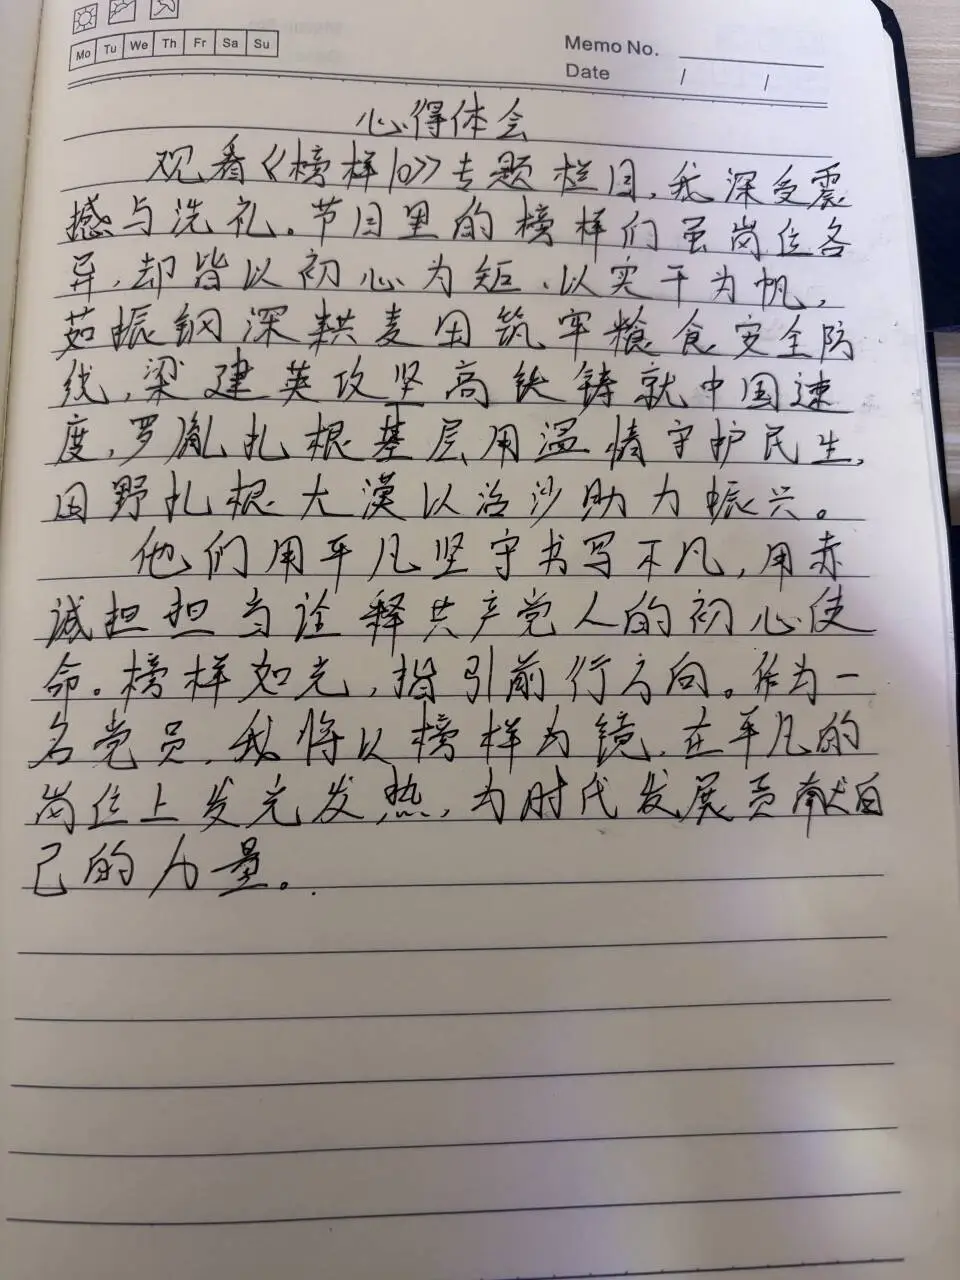 Mo Tu We Th Fr Sa Su
Memo No.
Date / /
心得体会
观看《榜样10》专题栏目，我深受震
撼与洗礼。节目里的榜样们虽岗位各
异，却皆以初心为矩、以实干为帆，
茹振钢深耕麦田筑牢粮食安全防
线，梁建英攻坚高铁铸就中国速
度，罗胤扎根基层用温情守护民生，
田野扎根大漠以治沙助力振兴。
他们用平凡坚守书写不凡，用赤
诚担担当诠释共产党人的初心使
命。榜样如光，指引前行方向。作为一
名党员，我将以榜样为镜，在平凡的
岗位上发光发热，为时代发展贡献自
己的力量。